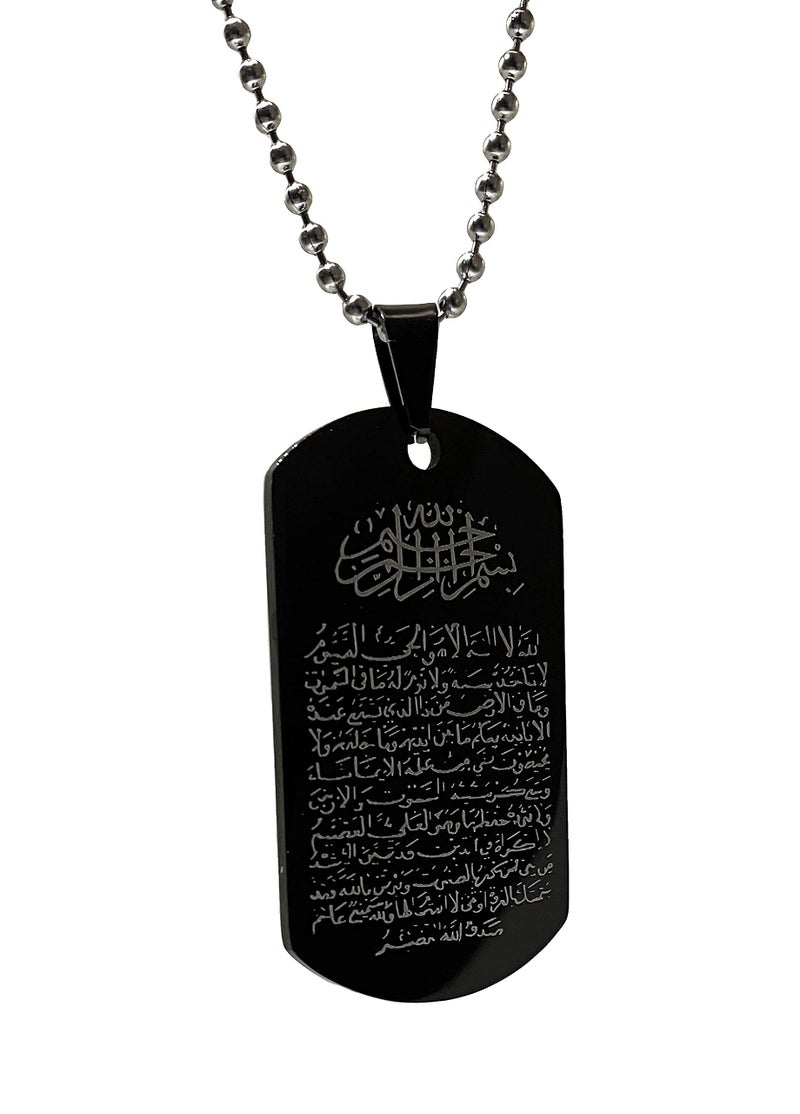 بسم الله الرحمن الرحيم
الله لا اله الا هو الحي القيوم
لا تاخذه سنة ولا نوم له ما في السموات
وما في الارض من ذا الذي يشفع عنده
الا باذنه يعلم ما بين ايديهم وما خلفهم ولا
يحيطون بشيء من علمه الا بما شاء
وسع كرسيه السموت والارض
ولا يؤده حفظهما وهو العلي العظيم
لا اكراه في الدين قد تبين الرشد
من الغي فمن يكفر بالطاغوت ويؤمن بالله فقد
استمسك بالعروة الوثقى لا انفصام لها والله سميع عليم
صدق الله العظيم